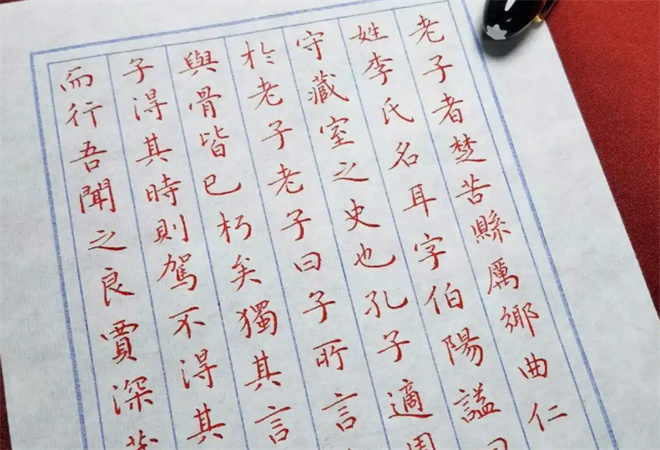 老子者楚苦縣厲鄉曲仁
姓李氏名耳字伯陽謚曰
守藏室之史也孔子適周
於老子老子曰子所言
與骨皆已朽矣獨其言
子得其時則駕不得其
而行吾聞之良賈深